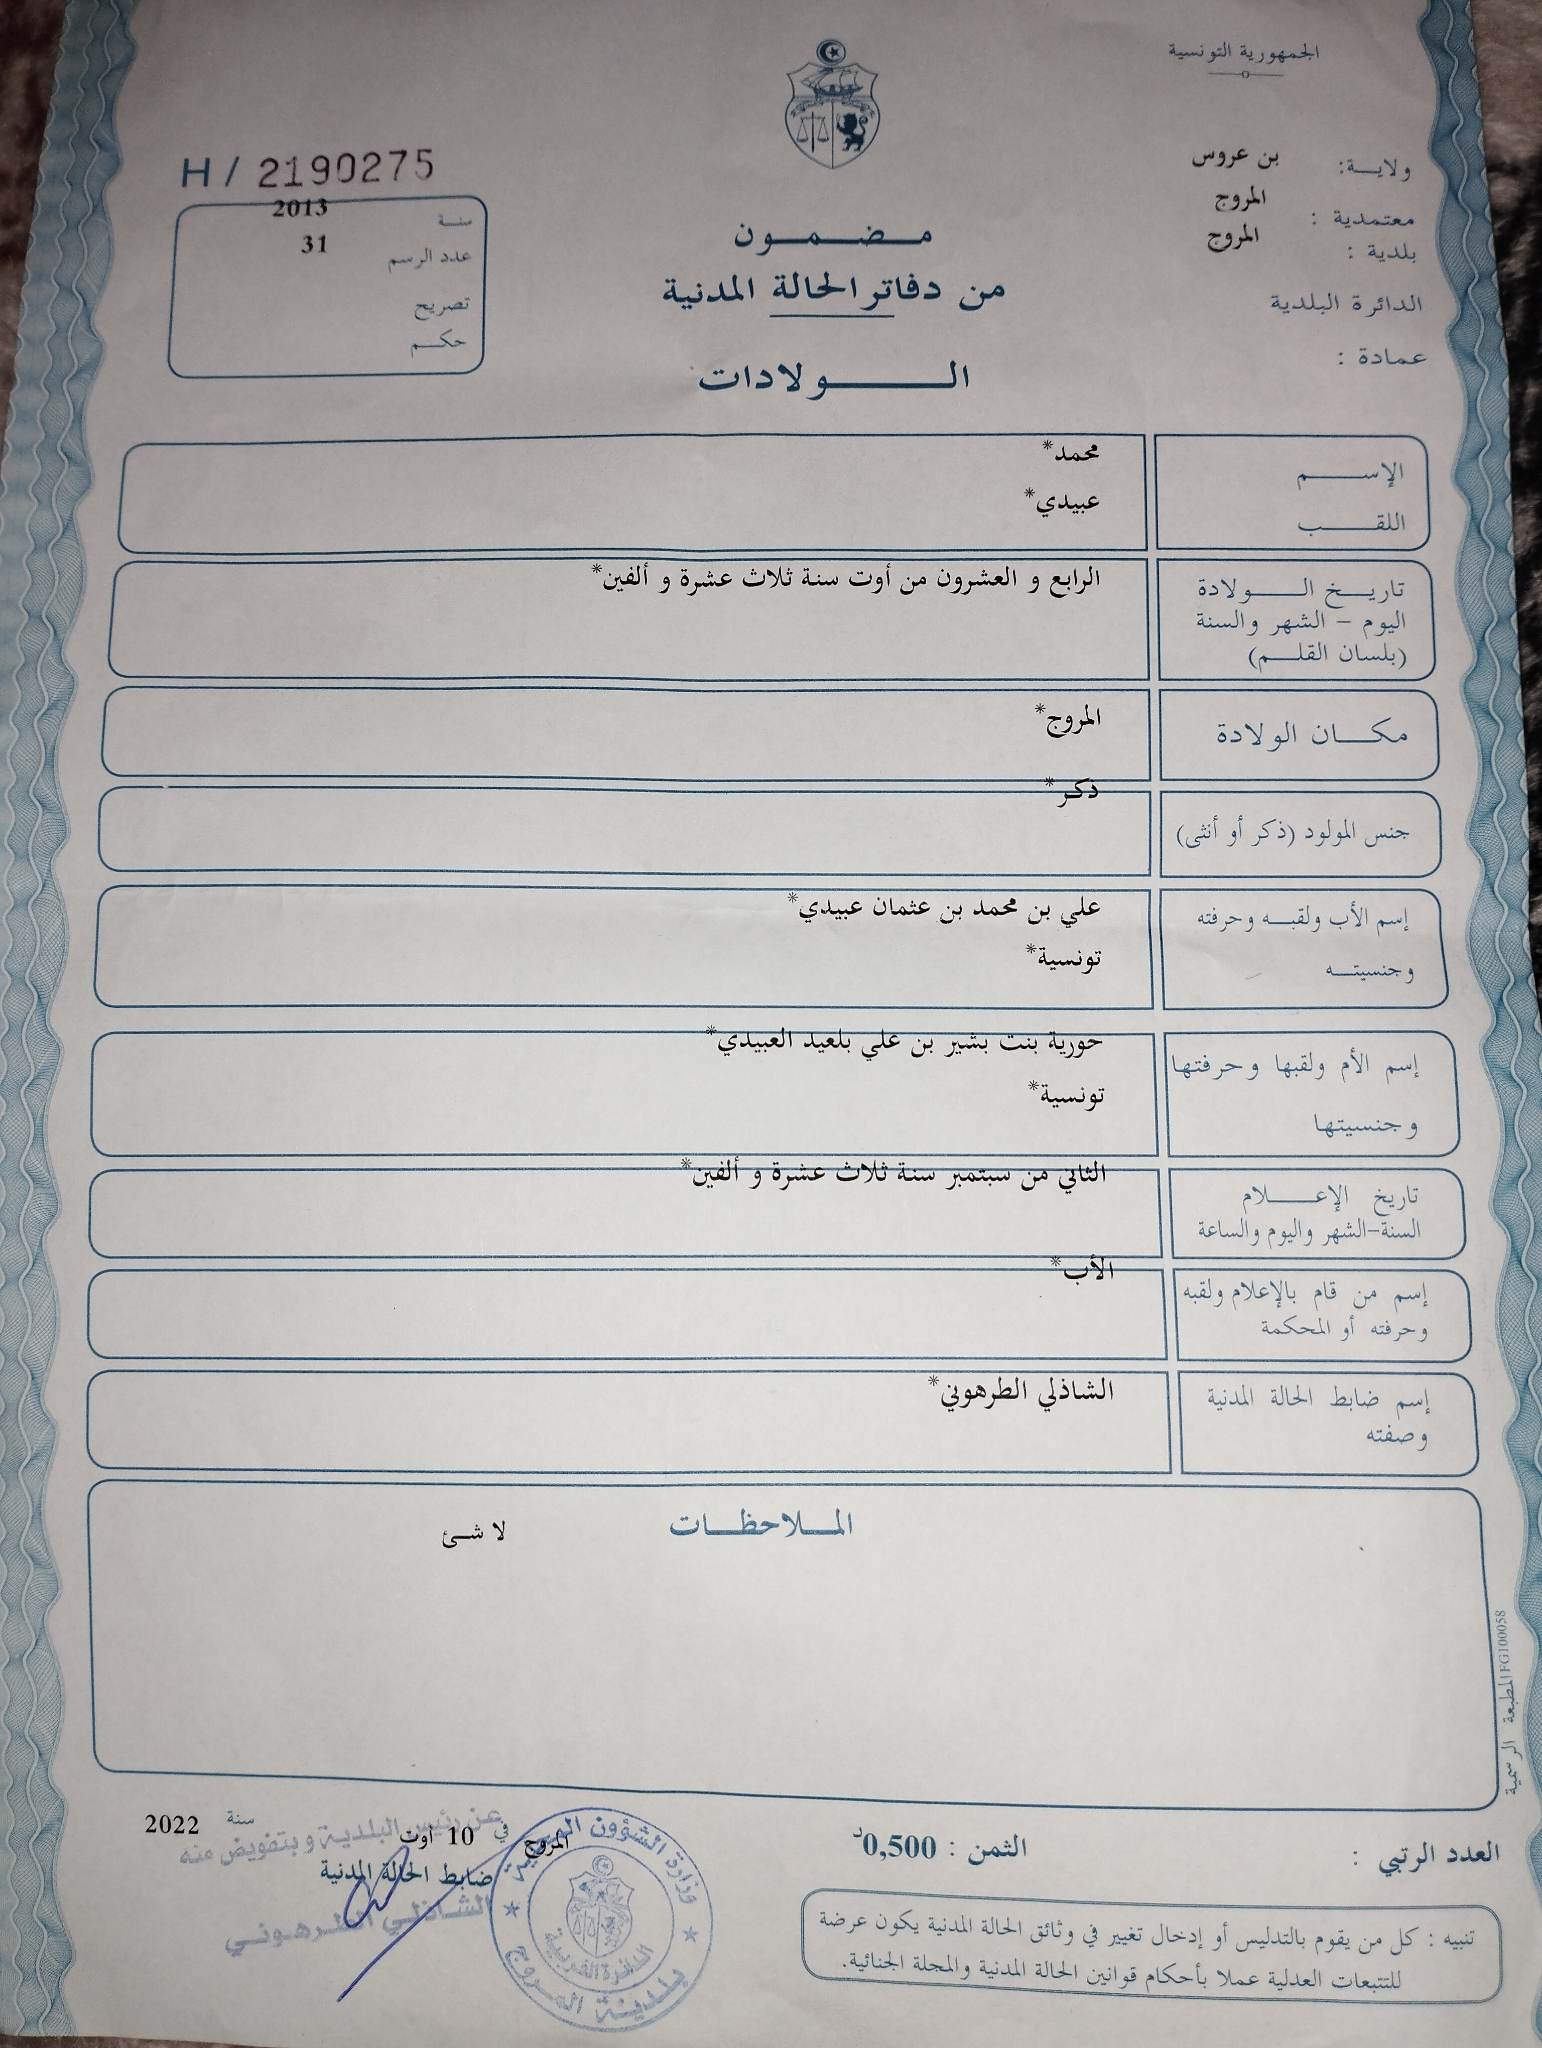 الجمهورية التونسية
ولاية: بن عروس
معتمدية : المروج
بلدية : المروج
الدائرة البلدية
عمادة :
H / 2190275
سنة 2013
عدد الرسم 31
تصريح
حكم
مضمون
من دفاتر الحالة المدنية
الولادات
الإسم محمد*
اللقب عبيدي*
تاريخ الولادة الرابع و العشرون من أوت سنة ثلاث عشرة و ألفين*
اليوم - الشهر والسنة
(بلسان القلم)
مكان الولادة المروج*
جنس المولود (ذكر أو أنثى) ذكر*
إسم الأب ولقبه وحرفته علي بن محمد بن عثمان عبيدي*
وجنسيته تونسية*
إسم الأم ولقبها وحرفتها حورية بنت بشير بن علي بلعيد العبيدي*
وجنسيتها تونسية*
تاريخ الإعلام الثاني من سبتمبر سنة ثلاث عشرة و ألفين*
السنة-الشهر واليوم والساعة
إسم من قام بالإعلام ولقبه الأب*
وحرفته أو المحكمة
إسم ضابط الحالة المدنية الشاذلي الطرهوني*
وصفته
الملاحظات
لا شئ
المطبعة الرسمية FG100058
العدد الرتبي :
الثمن : 0,500د
المروج في 10 أوت سنة 2022
عن رئيس البلدية وبتفويض منه
ضابط الحالة المدنية
الشاذلي الطرهوني
وزارة الشؤون المحلية
الدائرة الغربية
بلدية المروج
تنبيه : كل من يقوم بالتدليس أو إدخال تغيير في وثائق الحالة المدنية يكون عرضة
للتتبعات العدلية عملا بأحكام قوانين الحالة المدنية والمجلة الجنائية.